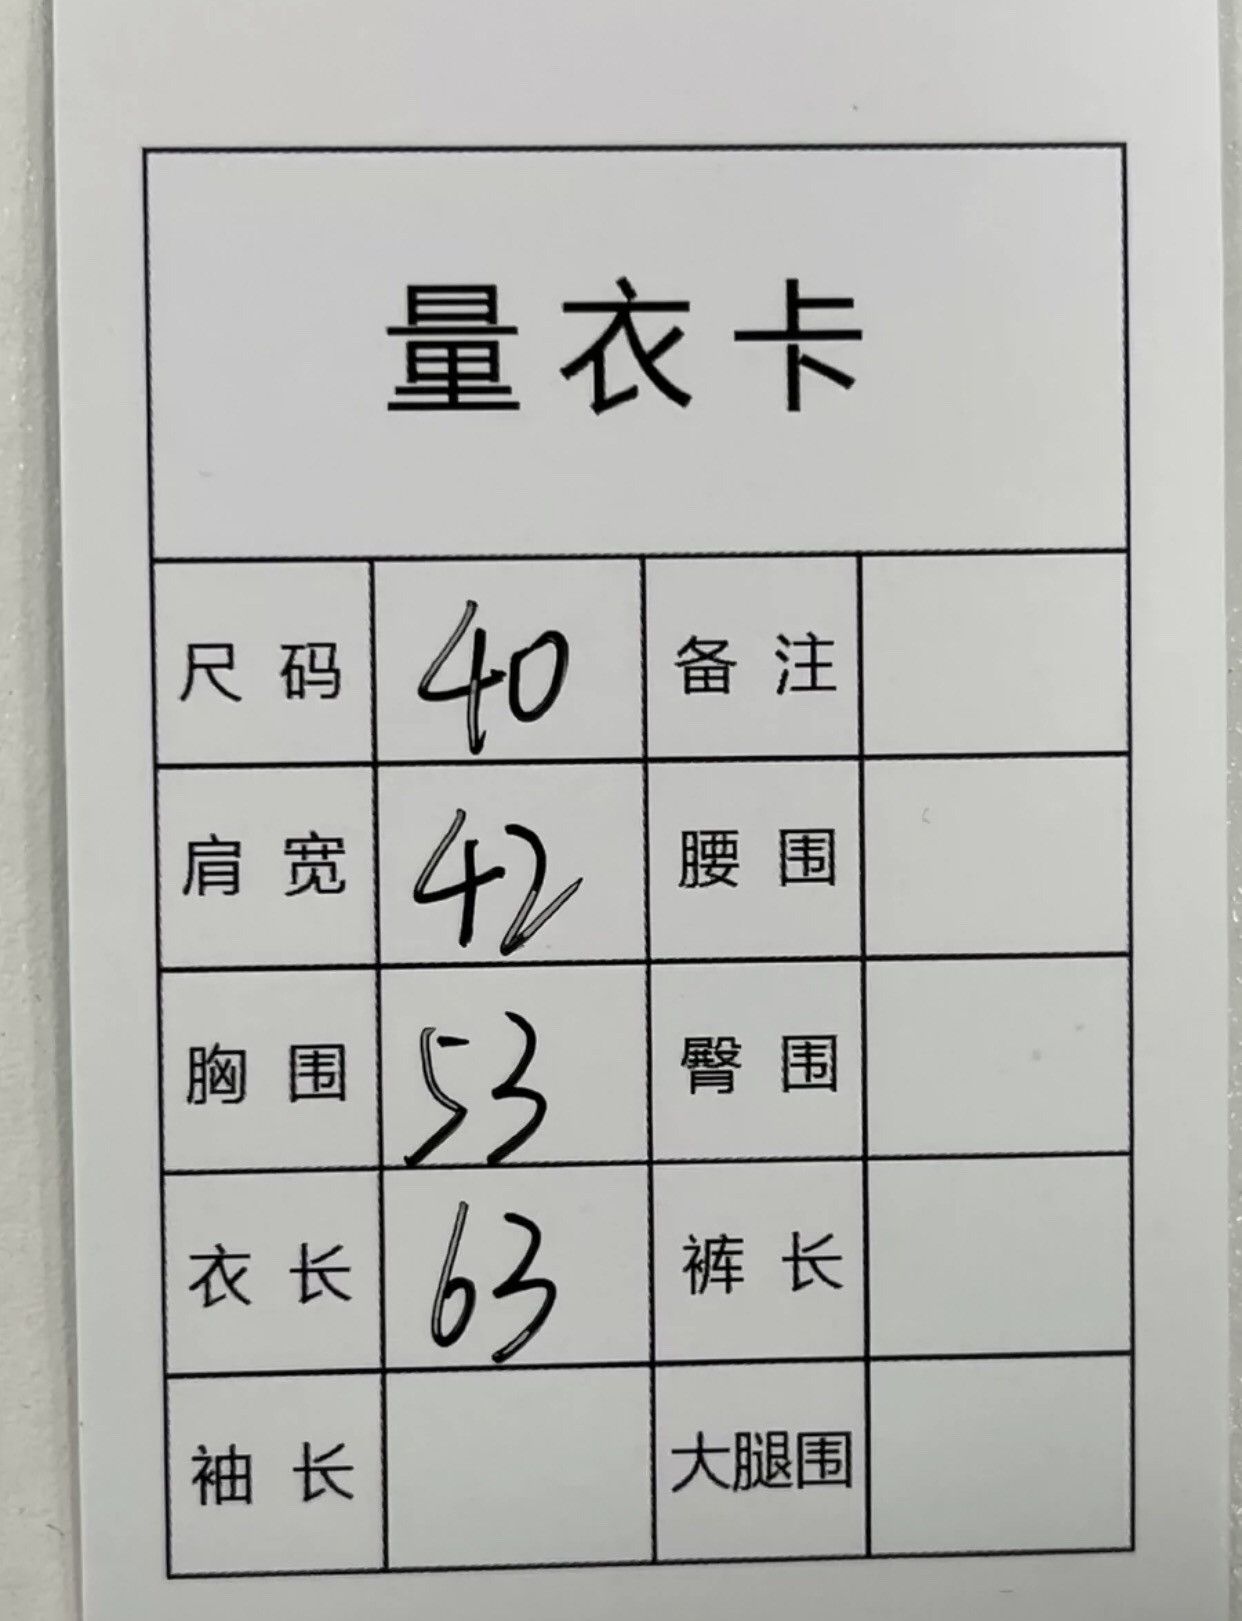 量衣卡
尺码 40 备注
肩宽 42 腰围
胸围 53 臀围
衣长 63 裤长
袖长 大腿围